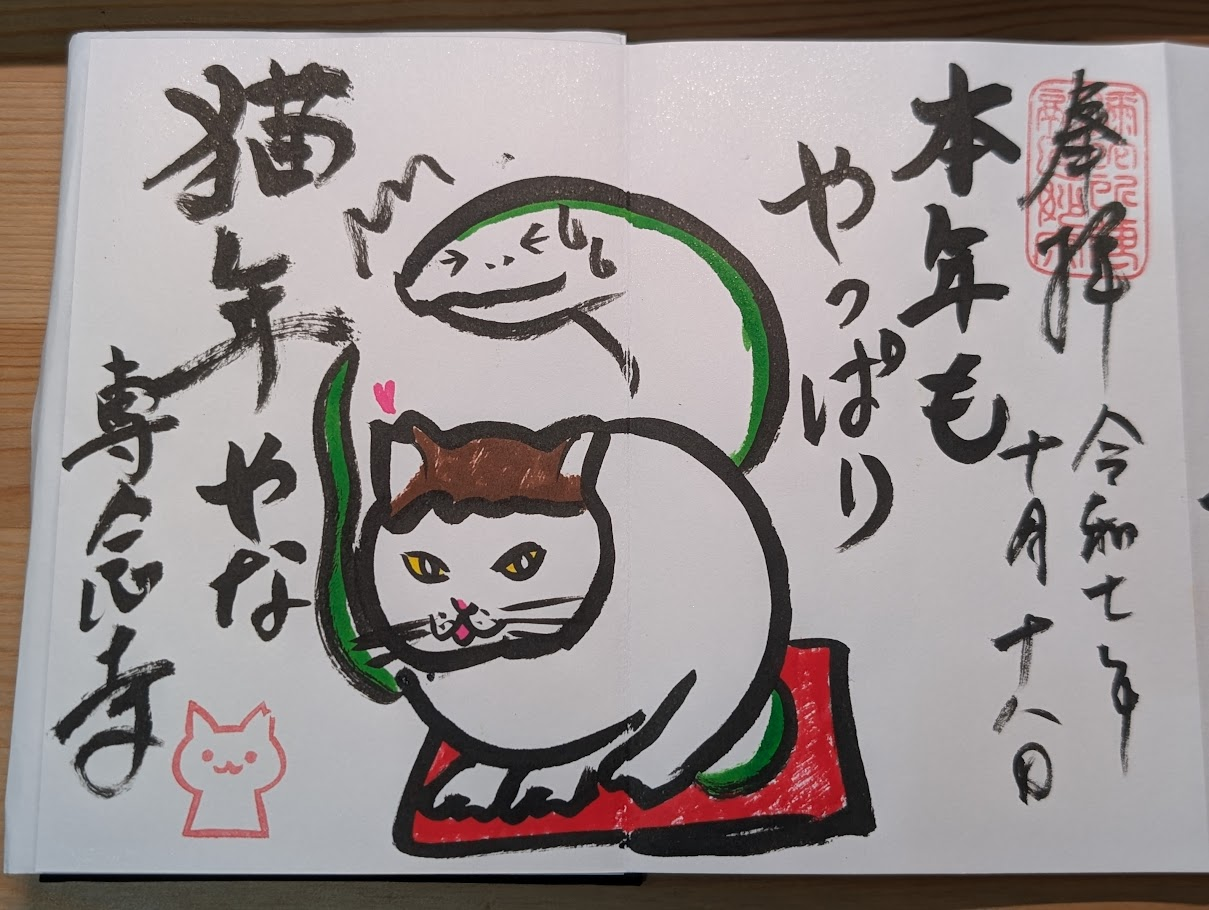 奉拝
令和七年
十月十八日
本年も
やっぱり
猫年
やな
専念寺